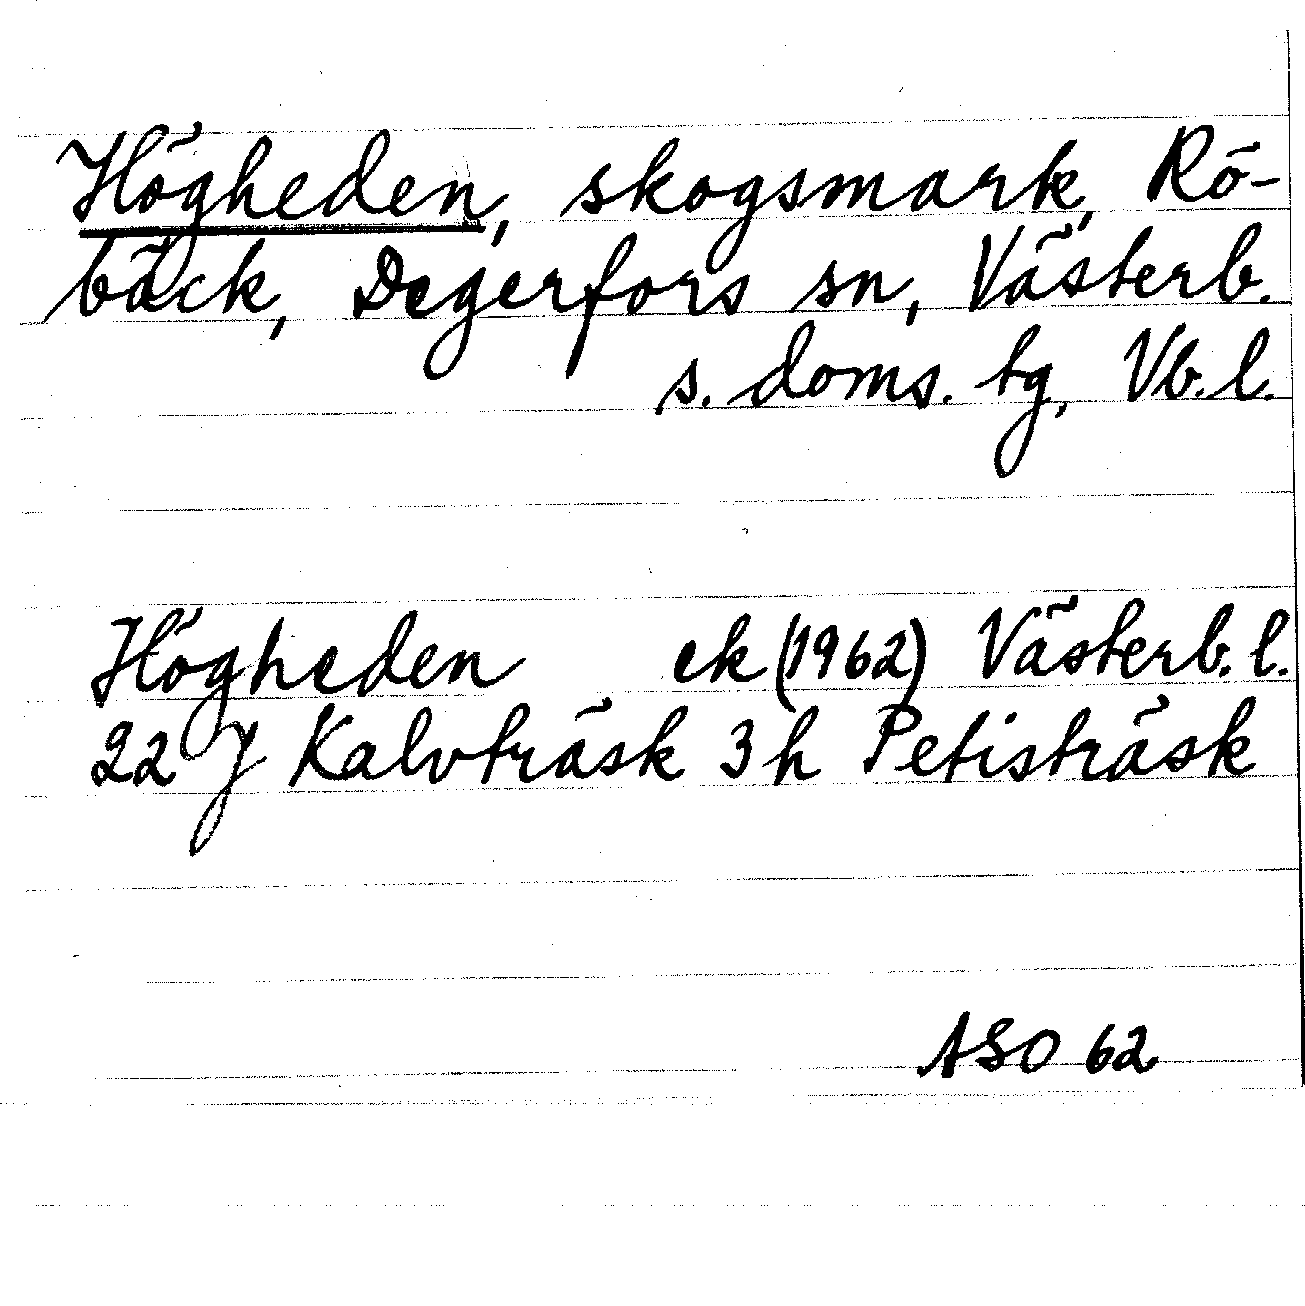 Högheden, skogsmark, Rö-
bäck, Degerfors sn, Västerb.
s. doms. tg, Vb. l.
Högheden ek (1962) Västerb. l.
22 J Kalvträsk 3 h Petisträsk
ASO 62